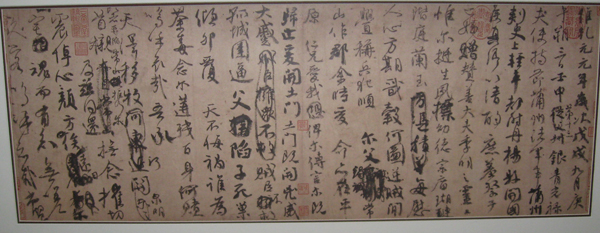 維乾元元年歲次戊戌九月庚
午朔三日壬申第十三叔銀青光祿
夫使持節蒲州諸軍事蒲州
刺史上輕車都尉丹楊縣開國
侯真卿以清酌庶羞祭于
亡姪贈贊善大夫季明之靈曰
惟爾挺生夙標幼德宗廟瑚璉
階庭蘭玉每慰
人心方期戩穀何圖逆賊間
釁稱兵犯順爾父竭誠常
山作郡余時受命亦在平
原仁兄愛我俾爾傳言爾既
歸止爰開土門土門既開凶威
大蹙賊臣不救
孤城圍逼父陷子死巢
傾卵覆天不悔禍誰為
荼毒念爾遘殘百身何贖
嗚呼哀哉吾承
天澤移牧河關泉明
首櫬及茲同還撫念摧切
震悼心顏方俟
宅魂而有知無嗟
久客嗚呼哀哉尚饗